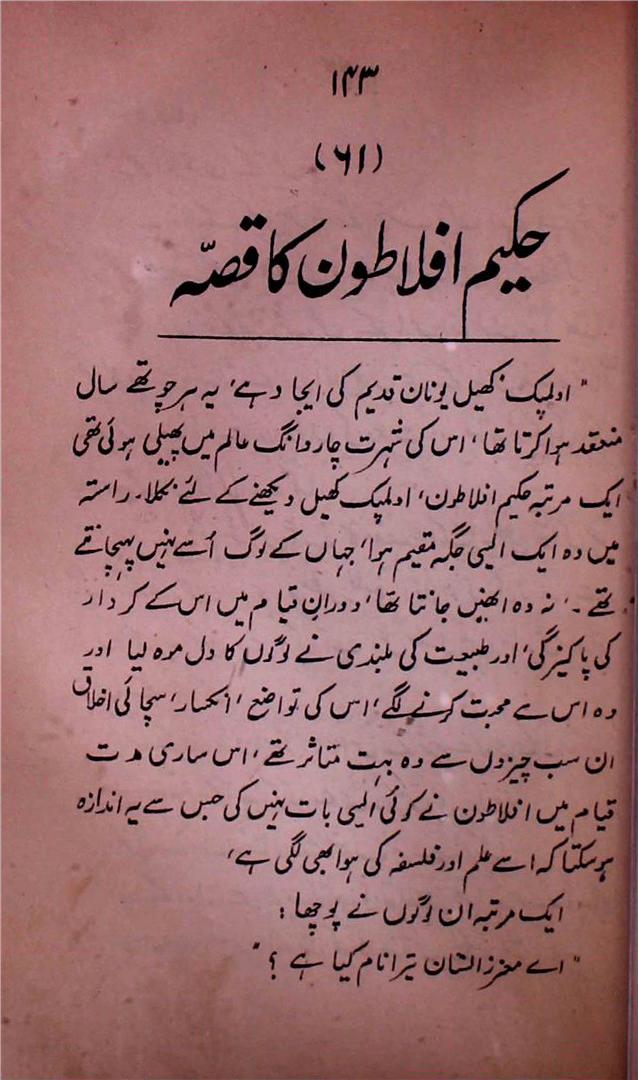 ۱۴۳
(۶۱)
حکیم افلاطون کا قصّہ
"اولمپک کھیل یونان قدیم کی ایجاد ہے، یہ ہر چوتھے سال
منعقد ہوا کرتا تھا، اس کی شہرت چار دانگ عالم میں پھیلی ہوئی تھی
ایک مرتبہ حکیم افلاطون، اولمپک کھیل دیکھنے کے لئے نکلا۔ راستہ
میں وہ ایک ایسی جگہ مقیم ہوا، جہاں کے لوگ اُسے نہیں پہچانتے
تھے۔، نہ وہ انھیں جانتا تھا، دورانِ قیام میں اس کے کردار
کی پاکیزگی، اور طبیعت کی بلندی نے لوگوں کا دل موہ لیا اور
وہ اس سے محبت کرنے لگے، اس کی تواضع، انکسار، سچائی اخلاق
ان سب چیزوں سے وہ بہت متاثر تھے، اس ساری مدت
قیام میں افلاطون نے کوئی ایسی بات نہیں کی جس سے یہ اندازہ
ہوسکتا کہ اسے علم اور فلسفہ کی ہوا بھی لگی ہے،
ایک مرتبہ ان لوگوں نے پوچھا:
"اے معزز الشان تیرا نام کیا ہے؟"